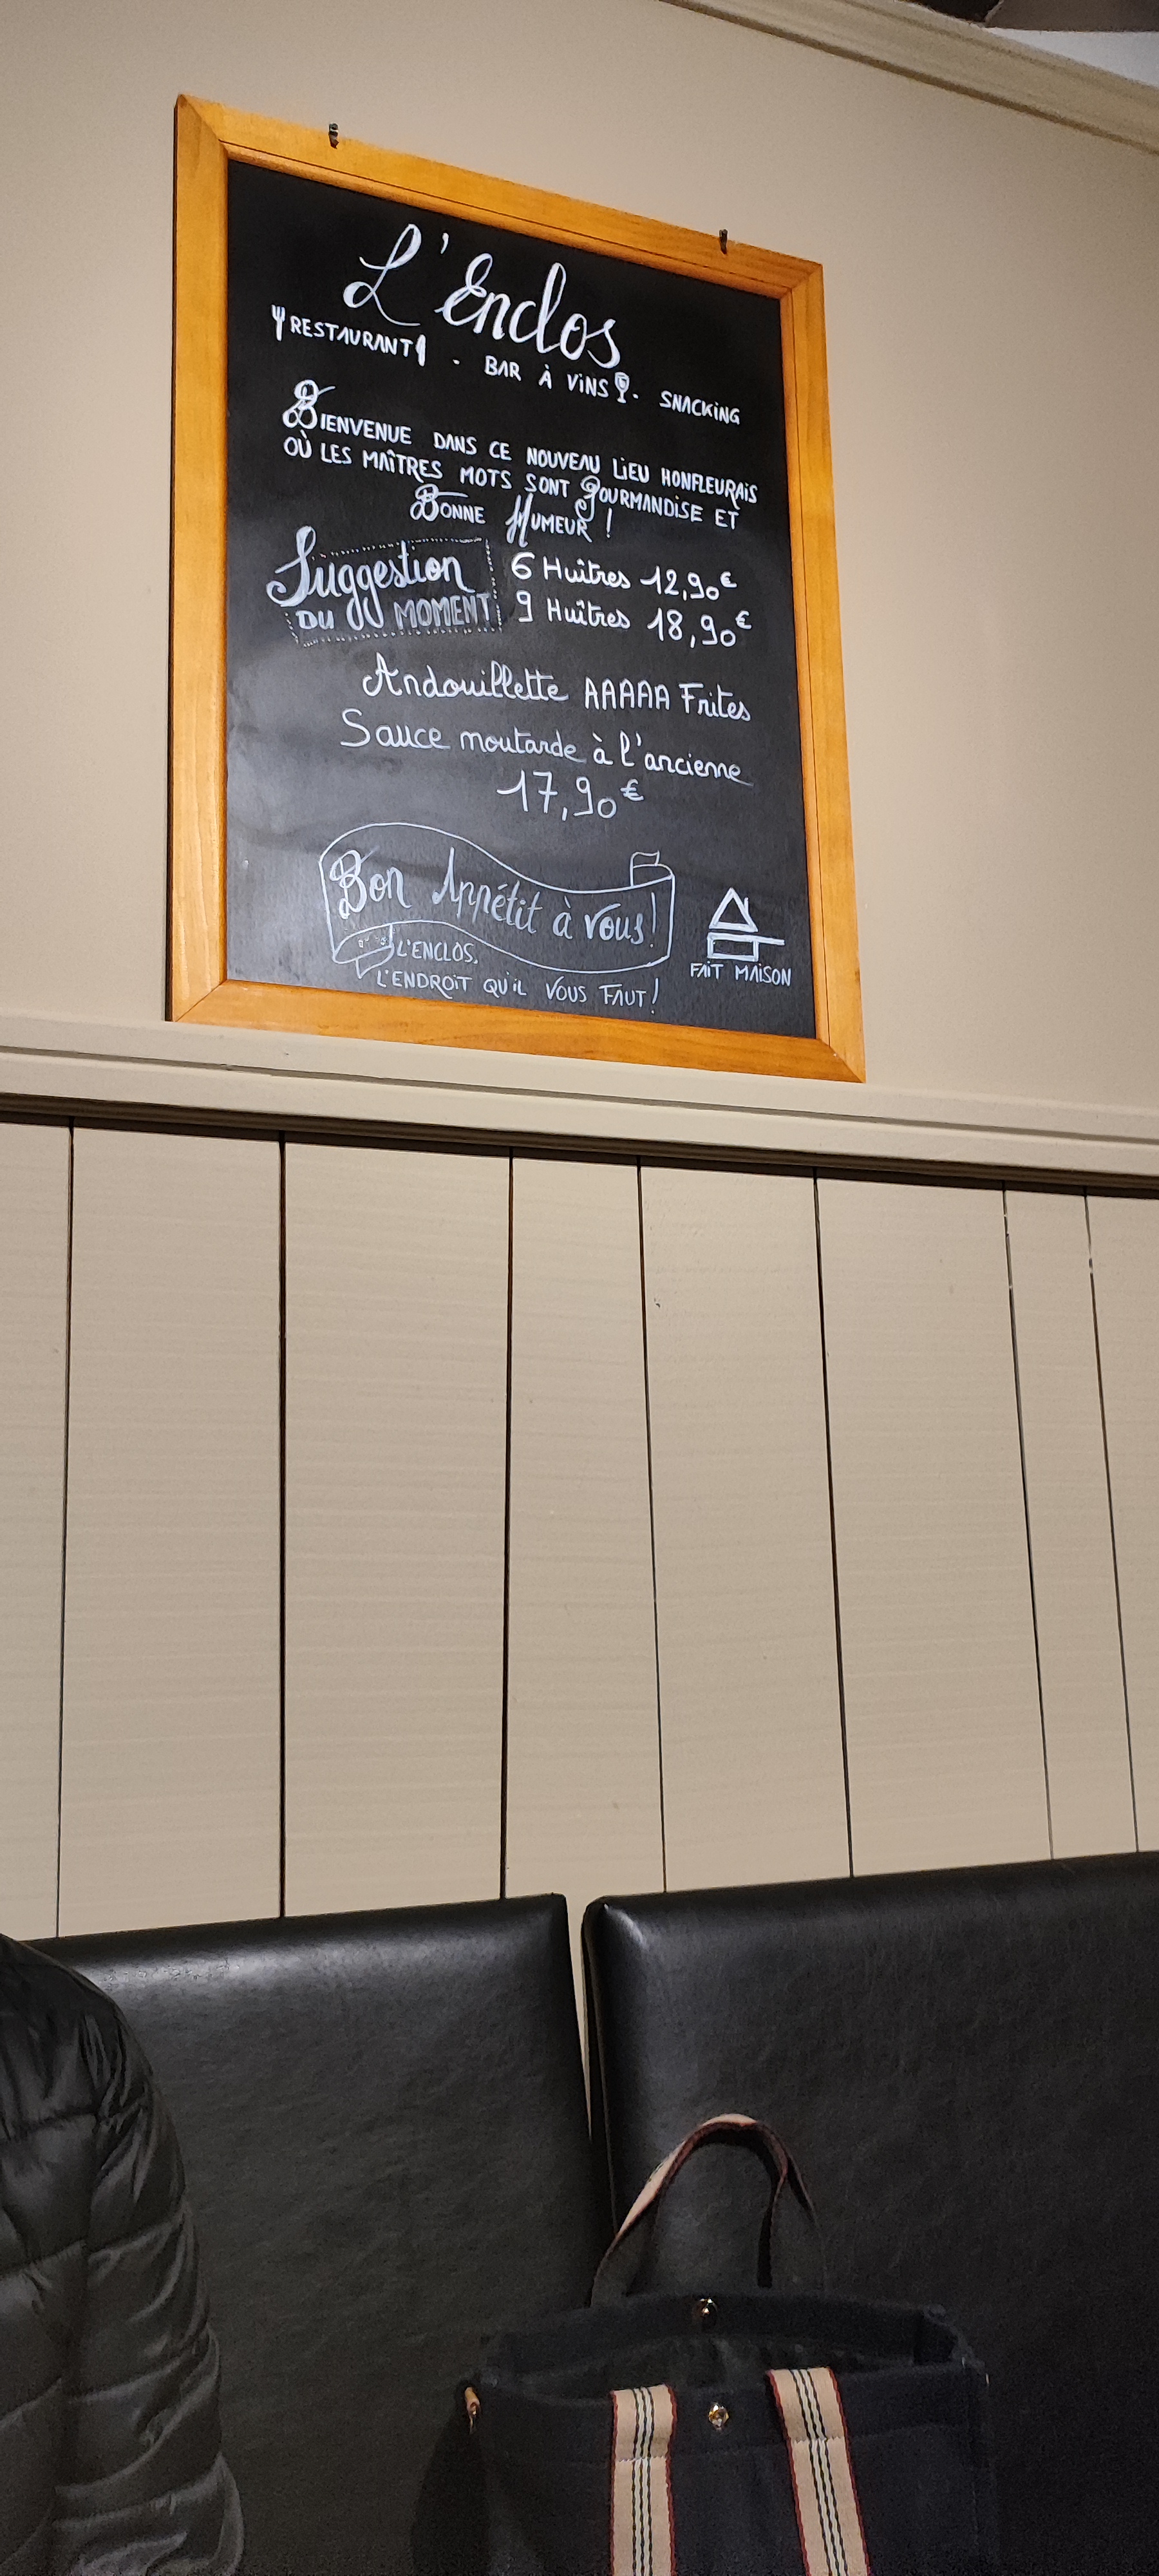 L'Enclos
RESTAURANT - BAR À VINS - SNACKING
BIENVENUE DANS CE NOUVEAU LIEU HONFLEURAIS
OÙ LES MAÎTRES MOTS SONT GOURMANDISE ET
BONNE HUMEUR !
Suggestion
DU MOMENT
6 Huîtres 12,90€
9 Huîtres 18,90€
Andouillette AAAAA Frites
Sauce moutarde à l'ancienne
17,90€
Bon Appétit à vous!
L'ENCLOS.
L'ENDROIT QU'IL VOUS FAUT!
FAIT MAISON